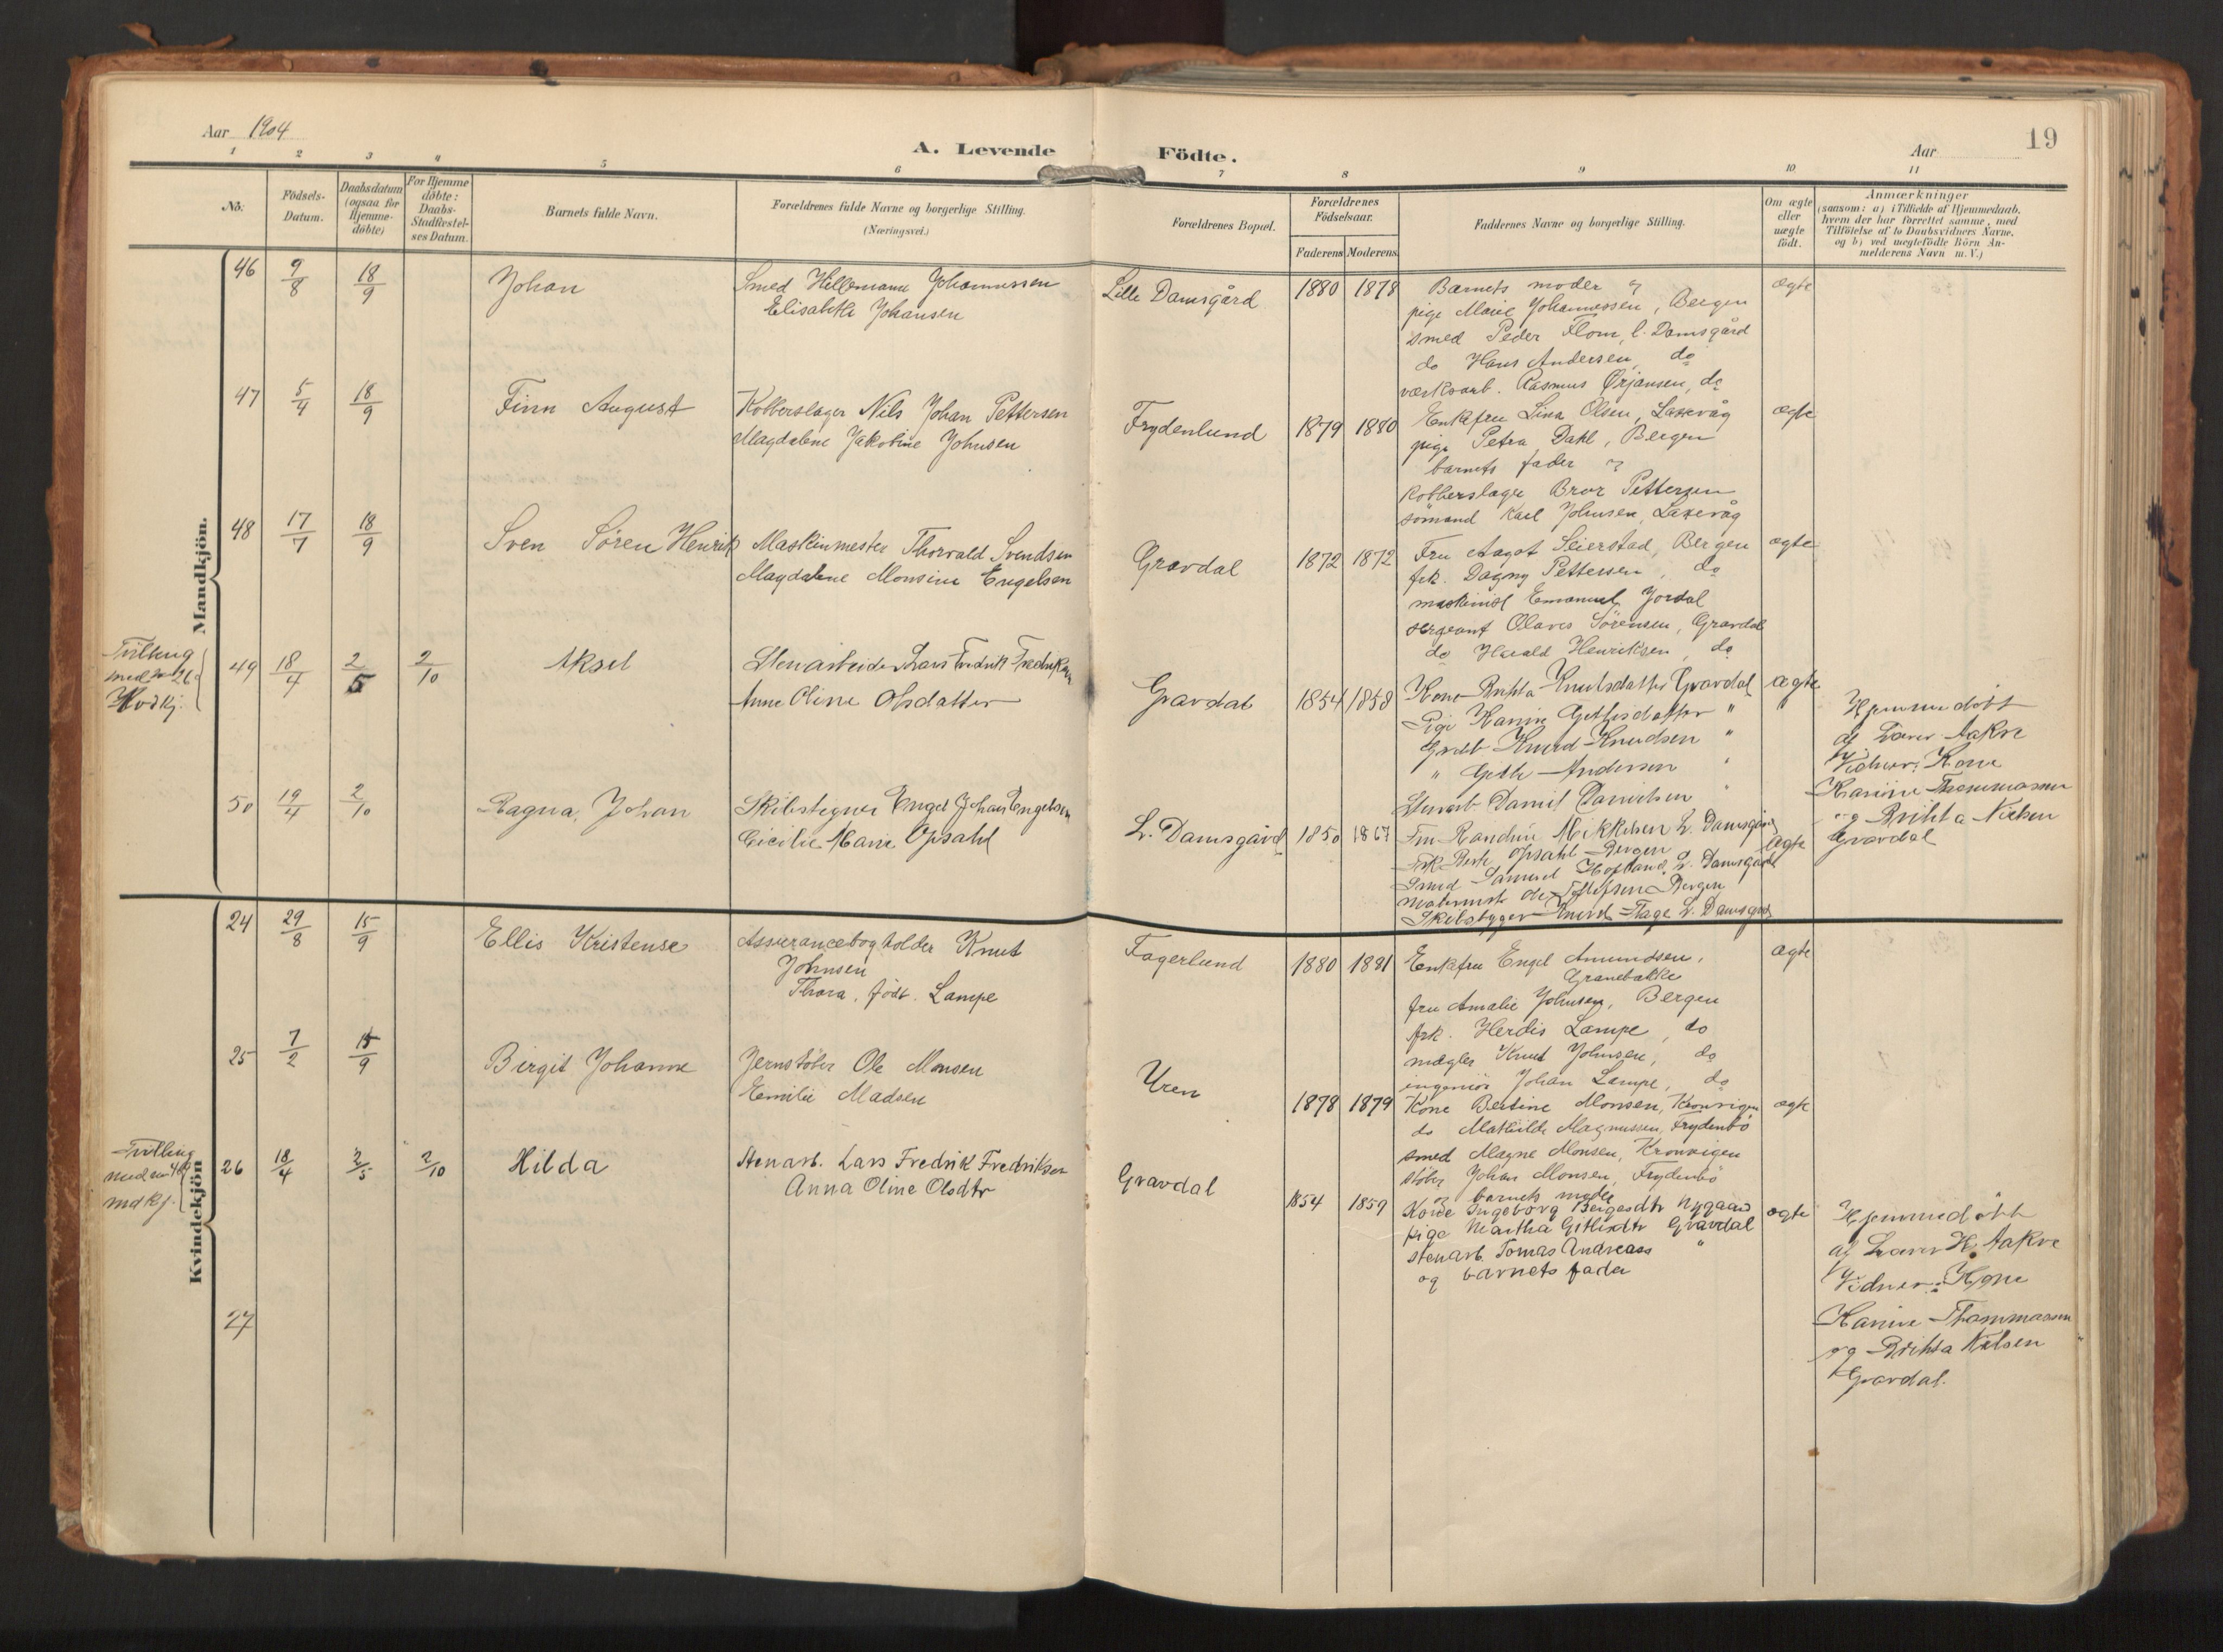 Aar 1904
A. Levende Födte.
Aar 19
1 2 3 4 5 6 7 8 9 10 11
No: Födsels-Datum. Daabsdatum (ogsaa for Hjemme-döbte) For Hjemme döbte: Daabs-Stadfæstel-ses Datum. Barnets fulde Navn. Forældrenes fulde Navne og borgerlige Stilling. (Næringsvei.) Forældrenes Bopæl. Forældrenes Födselsaar. Faderens Moderens Faddernes Navne og borgerlige Stilling. Om ægte eller uægte födt. Anmærkninger
(saasom: a) i Tilfælde af Hjemmedaab,
hvem der har forrettet samme, med
Tilföielse af to Daabsvidners Navne,
og b) ved uægtefödte Börn An-
melderens Navn m. V.)
Mandkjön.
46 9/8 18/9 Johan Smed Hellemann Johannessen
Elisabeth Johansen
Lille Damsgård 1880 1878 Barnets moder
pige Marie Johannessen, Bergen
smed Peder Flom, l. Damsgård
do Hans Andersen, do
værksarb. Rasmus Ørjansen, do
ægte
47 5/4 18/9 Finn August Kobberslager Nils Johan Pettersen
Magdalene Jakobine Johnsen
Frydenlund 1879 1880 Enkefru Lina Olsen, Laxevåg
pige Petra Dahl, Bergen
barnets fader
kobberslager Bror Pettersen
sömand Karl Johnsen, Laxevåg
ægte
48 17/7 18/9 Sven Sören Henrik Maskinmester Thorvald Svendsen
Magdalene Monsine Engelsen
Gravdal 1872 1872 Fru Aagot Seierstad, Bergen
frk. Dagny Pettersen, do
maskinist Emanuel Jordal
sergeant Olaves Sörensen, Gravdal
do Harald Henriksen, do
ægte
Tvilling
med no 26
Kvdkj.
49 18/4 2/5 2/10 Aksel Stenarbeider Lars Fredrik Fredriksen
Anne Oline Olsdatter
Gravdal 1854 1858 Kone Brihta Knutsdatter Gravdal
Pige Hanine Gethisdatter "
Knud Knudsen "
" Geth Andersen "
Stenarb Daniel Danielsen "
ægte
Hjemmedöbt
af Lærer Aakre
Vidner: Kone
Hanine Thommassen
og Brihta Nielsen
Gravdal
50 19/4 2/10 Ragna, Johan Skibstegner Engel Johan Engelsen
Cicilie Marie Opsahl
L. Damsgård 1850 1867 Fru Randine Mikkelsen L. Damsgård
Frk Berte Opsahl Bergen
Smed Samuel Hofland, L. Damsgård
Skibsbygger Knud Tage L. Damsgård
ægte
Kvindekjön
24 29/8 15/9 Ellis Kristense Assurancebogholder Knut
Johnsen
Thora, födt. Lampe
Fagerlund 1880 1881 Enkefru Engel Amundsen,
Granebakke
fru Amalie Johnsen, Bergen
frk. Herdis Lampe, do
mægler Knut Johnsen, do
ingeniör Johan Lampe, do
ægte
25 7/2 15/9 Birgit Johanne Jernstöber Ole Monsen
Emilie Madsen
Uren 1878 1879 Kone Bertine Monsen, Kronvigen
do Mathilde Magnussen, Frydenbö
smed Magne Monsen, Kronvigen
stöber Johan Monsen, Frydenbö
og barnets moder
ægte
Tvilling
med no 49
mdkj.
26 18/4 2/5 2/10 Hilda Stenarb. Lars Fredrik Fredriksen
Anna Oline Olsdtr
Gravdal 1854 1859 Kone Ingeborg Bergesdtr Nygaard
pige Martha Githisdtr Gravdal
stenarb. Tomas Andreass "
og barnets fader
ægte
Hjemmedöbt
af Lærer H. Aakre
Vidner: Kone
Hanine Thommassen
og Brihta Nielsen
Gravdal.
27